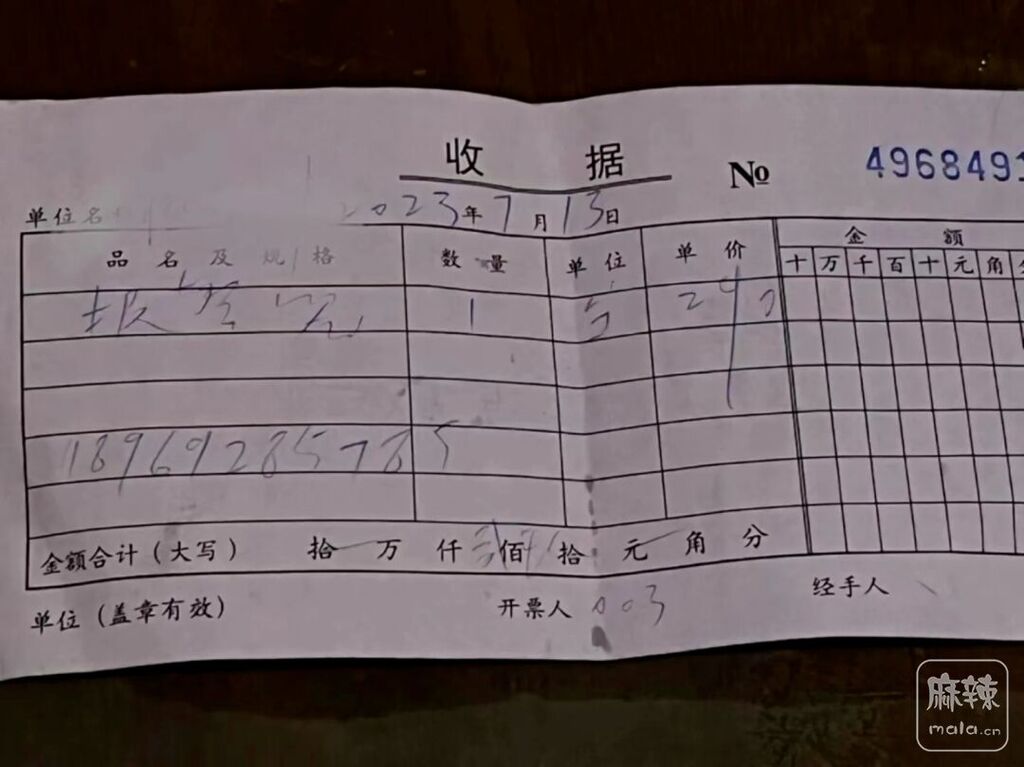 收 据 № 4968491
单位名 2023年7月13日
品名及规格 数量 单位 单价 金额
十 万 千 百 十 元 角 分
1 290
18969285785
金额合计（大写） 拾 万 仟 贰 佰 玖 拾 元 角 分
单位（盖章有效） 开票人 003 经手人
麻辣
mala.cn